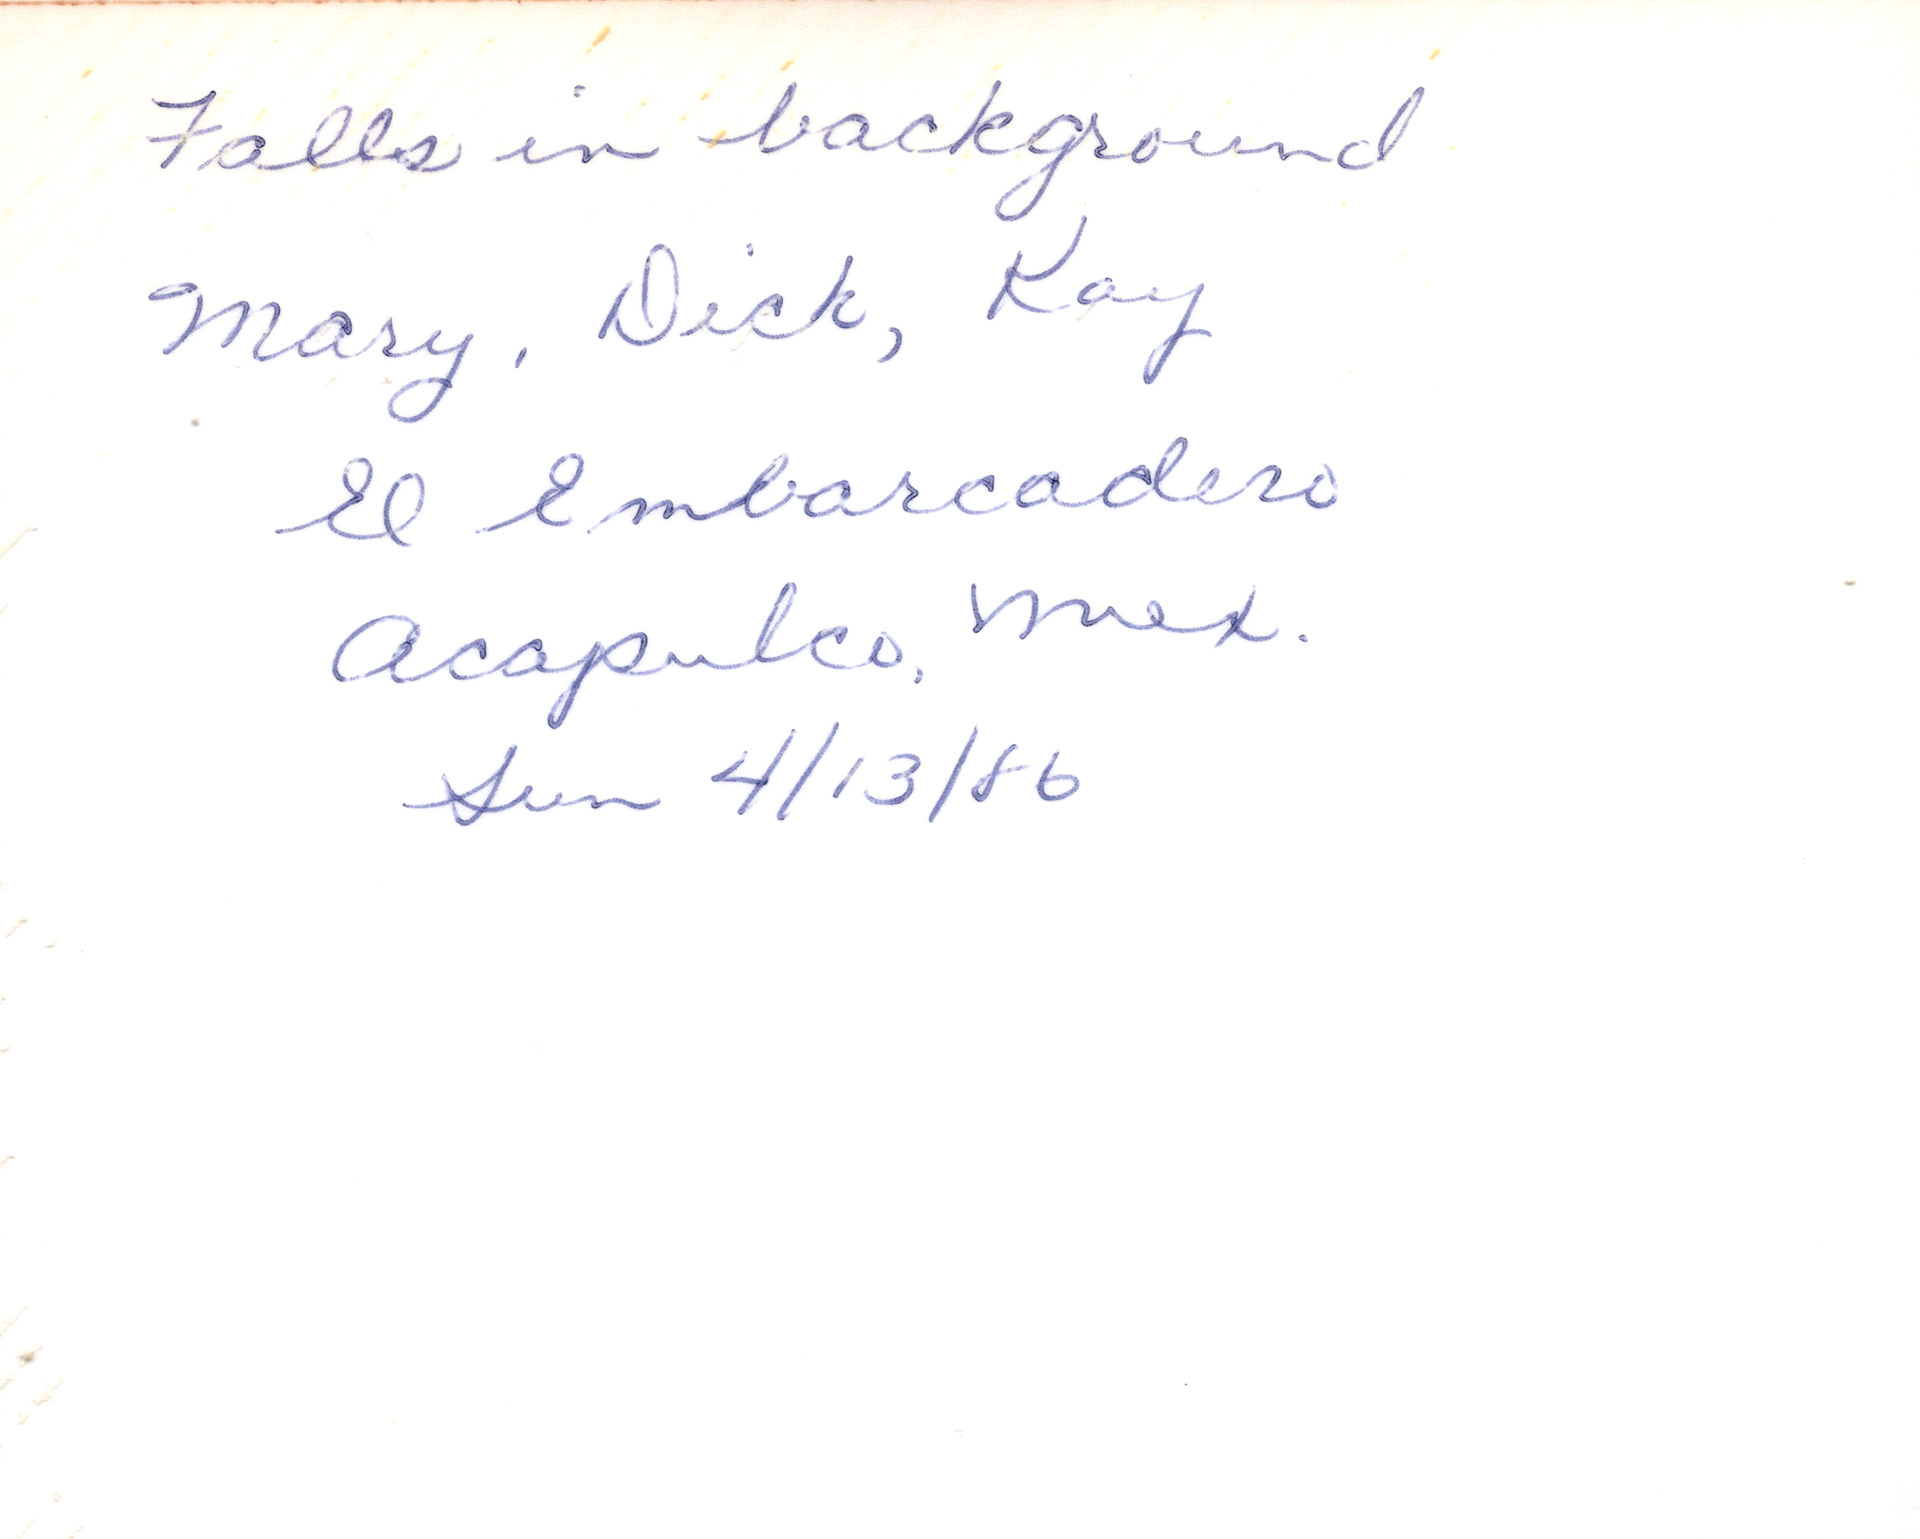 Falls in background
Mary, Dick, Kay
El Embarcadero
Acapulco, Mex.
Sun 4/13/86